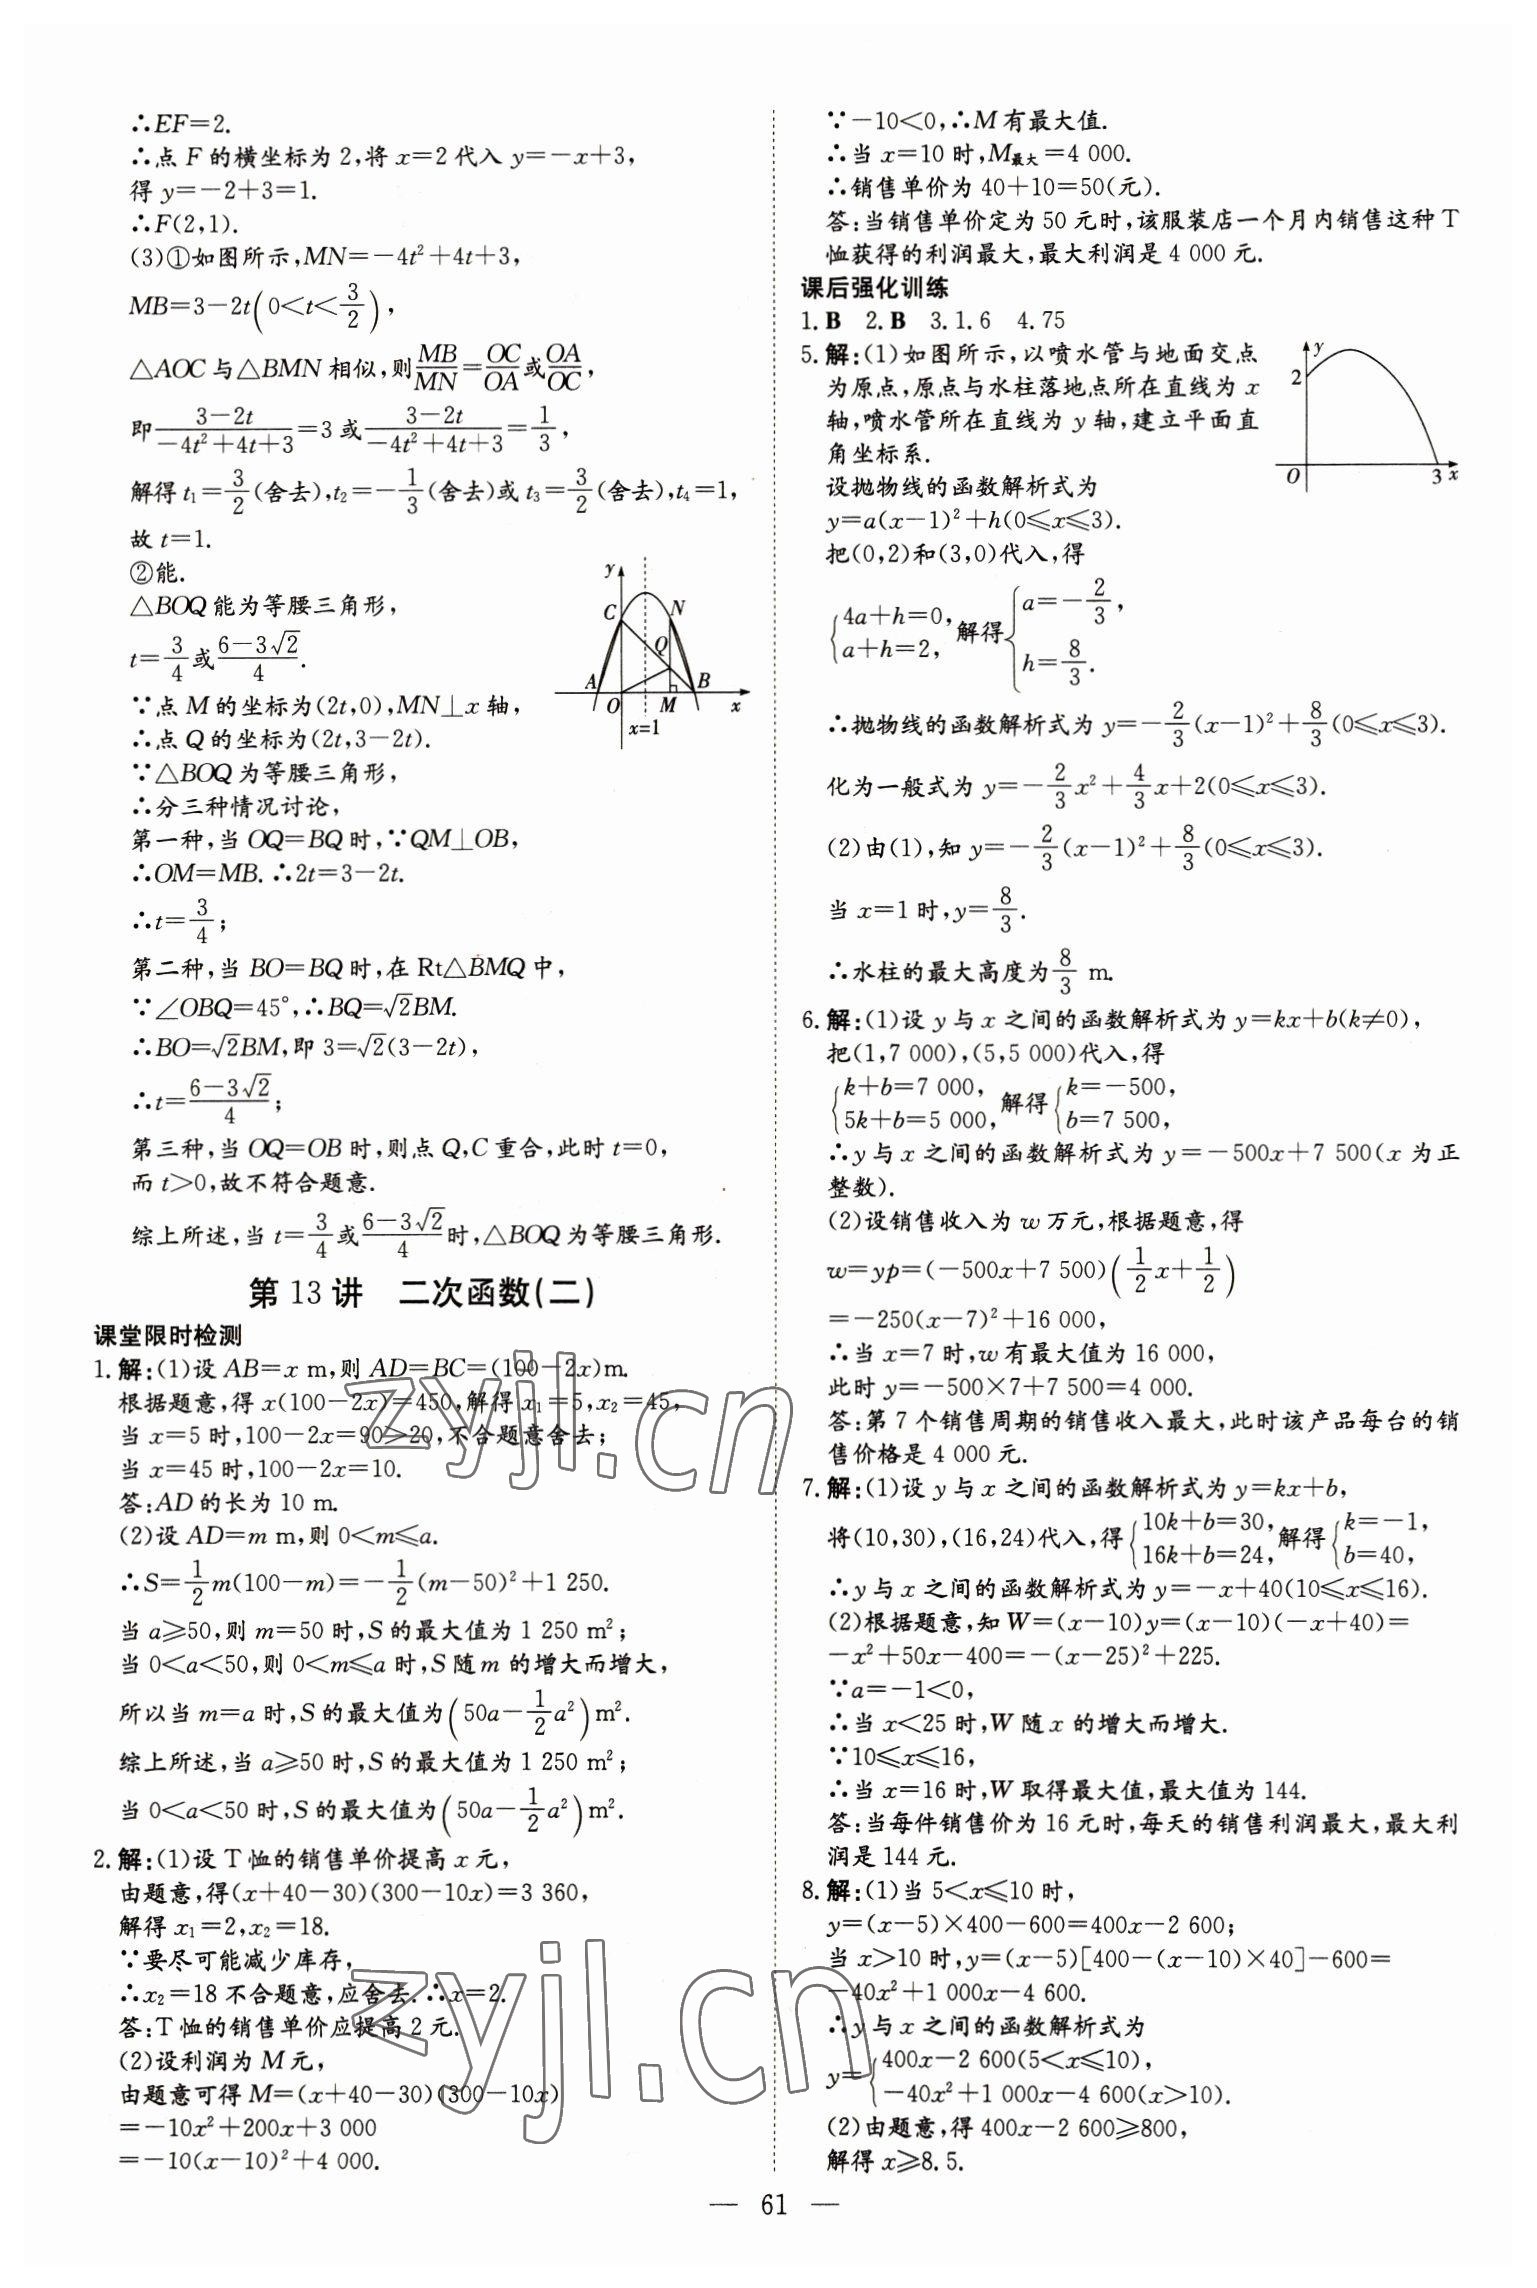 ∴EF=2.
∴点 F 的横坐标为 2,将 x=2 代入 y=-x+3,
得 y=-2+3=1.
∴F(2,1).
(3)①如图所示,MN=-4t²+4t+3,
MB=3-2t(0<t<3/2),
△AOC 与△BMN 相似,则MB/MN=OC/OA或OA/OC,
即(3-2t)/(-4t²+4t+3)=3 或(3-2t)/(-4t²+4t+3)=1/3,
解得 t₁=3/2(舍去),t₂=-1/3(舍去)或 t₃=3/2(舍去),t₄=1,
故 t=1.
②能.
△BOQ 能为等腰三角形,
t=3/4或(6-3√2)/4.
∵点 M 的坐标为(2t,0),MN⊥x 轴,
∴点 Q 的坐标为(2t,3-2t).
∵△BOQ 为等腰三角形,
∴分三种情况讨论,
第一种,当 OQ=BQ 时,∵QM⊥OB,
∴OM=MB. ∴2t=3-2t.
∴t=3/4;
第二种,当 BO=BQ 时,在 Rt△BMQ 中,
∵∠OBQ=45°,∴BQ=√2BM.
∴BO=√2BM,即 3=√2(3-2t),
∴t=(6-3√2)/4;
第三种,当 OQ=OB 时,则点 Q,C 重合,此时 t=0,
而 t>0,故不符合题意.
综上所述,当 t=3/4或(6-3√2)/4时,△BOQ 为等腰三角形.
y
C
N
Q
A
B
O
M
x
x=1
第 13 讲 二次函数(二)
课堂限时检测
1. 解:(1)设 AB=x m,则 AD=BC=(100-2x)m.
根据题意,得 x(100-2x)=450,解得 x₁=5,x₂=45,
当 x=5 时,100-2x=90>20,不合题意舍去;
当 x=45 时,100-2x=10.
答:AD 的长为 10 m.
(2)设 AD=m m,则 0<m≤a.
∴S=1/2m(100-m)=-1/2(m-50)²+1 250.
当 a≥50,则 m=50 时,S 的最大值为 1 250 m²;
当 0<a<50,则 0<m≤a 时,S 随 m 的增大而增大,
所以当 m=a 时,S 的最大值为(50a-1/2a²)m².
综上所述,当 a≥50 时,S 的最大值为 1 250 m²;
当 0<a<50 时,S 的最大值为(50a-1/2a²)m².
2. 解:(1)设 T 恤的销售单价提高 x 元,
由题意,得(x+40-30)(300-10x)=3 360,
解得 x₁=2,x₂=18.
∵要尽可能减少库存,
∴x₂=18 不合题意,应舍去.∴x=2.
答:T 恤的销售单价应提高 2 元.
(2)设利润为 M 元,
由题意可得 M=(x+40-30)(300-10x)
=-10x²+200x+3 000
=-10(x-10)²+4 000.
∵-10<0,∴M 有最大值.
∴当 x=10 时,M最大=4 000.
∴销售单价为 40+10=50(元).
答:当销售单价定为 50 元时,该服装店一个月内销售这种 T
恤获得的利润最大,最大利润是 4 000 元.
课后强化训练
1. B 2. B 3. 1. 6 4. 75
5. 解:(1)如图所示,以喷水管与地面交点
为原点,原点与水柱落地点所在直线为 x
轴,喷水管所在直线为 y 轴,建立平面直
角坐标系.
y
2
O
3
x
设抛物线的函数解析式为
y=a(x-1)²+h(0≤x≤3).
把(0,2)和(3,0)代入,得
{4a+h=0, a+h=2, 解得{a=-2/3, h=8/3.
∴抛物线的函数解析式为 y=-2/3(x-1)²+8/3(0≤x≤3).
化为一般式为 y=-2/3x²+4/3x+2(0≤x≤3).
(2)由(1),知 y=-2/3(x-1)²+8/3(0≤x≤3).
当 x=1 时,y=8/3.
∴水柱的最大高度为8/3 m.
6. 解:(1)设 y 与 x 之间的函数解析式为 y=kx+b(k≠0),
把(1,7 000),(5,5 000)代入,得
{k+b=7 000, 5k+b=5 000, 解得{k=-500, b=7 500,
∴y 与 x 之间的函数解析式为 y=-500x+7 500(x 为正
整数).
(2)设销售收入为 w 万元,根据题意,得
w=yp=(-500x+7 500)(1/2x+1/2)
=-250(x-7)²+16 000,
∴当 x=7 时,w 有最大值为 16 000,
此时 y=-500×7+7 500=4 000.
答:第 7 个销售周期的销售收入最大,此时该产品每台的销
售价格是 4 000 元.
7. 解:(1)设 y 与 x 之间的函数解析式为 y=kx+b,
将(10,30),(16,24)代入,得{10k+b=30, 16k+b=24, 解得{k=-1, b=40,
∴y 与 x 之间的函数解析式为 y=-x+40(10≤x≤16).
(2)根据题意,知 W=(x-10)y=(x-10)(-x+40)=
-x²+50x-400=-(x-25)²+225.
∵a=-1<0,
∴当 x<25 时,W 随 x 的增大而增大.
∵10≤x≤16,
∴当 x=16 时,W 取得最大值,最大值为 144.
答:当每件销售价为 16 元时,每天的销售利润最大,最大利
润是 144 元.
8. 解:(1)当 5<x≤10 时,
y=(x-5)×400-600=400x-2 600;
当 x>10 时,y=(x-5)[400-(x-10)×40]-600=
-40x²+1 000x-4 600.
∴y 与 x 之间的函数解析式为
y={400x-2 600(5<x≤10), -40x²+1 000x-4 600(x>10).
(2)由题意,得 400x-2 600≥800,
解得 x≥8. 5.
— 61 —
zyjl.cn
zyjl.cn